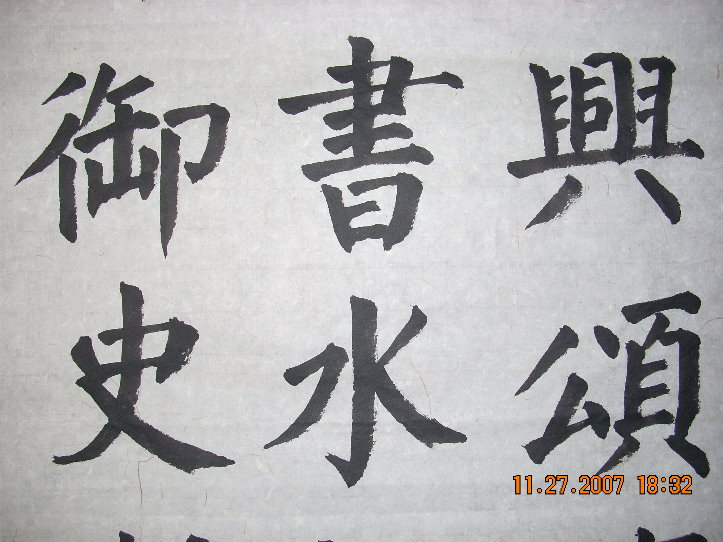 興頌
書水
御史
11.27.2007 18:32